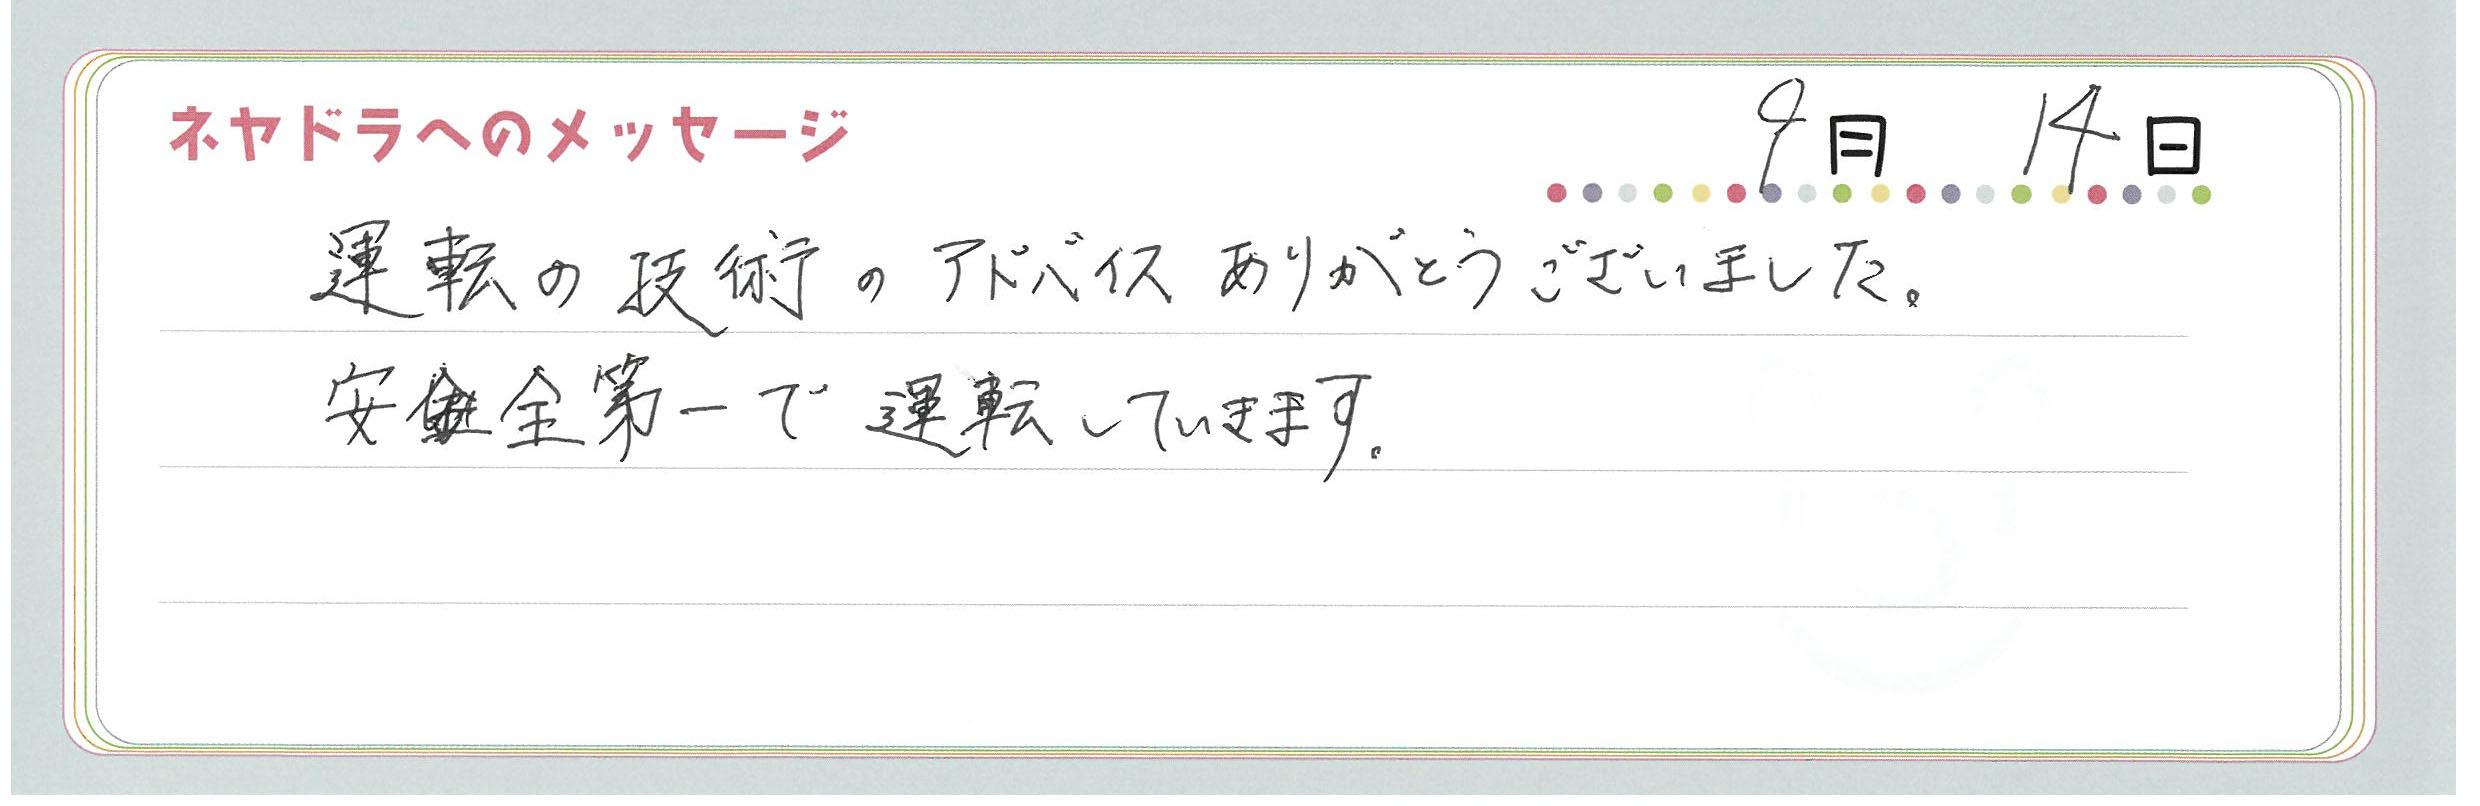 ネヤドラへのメッセージ
9月 14日
運転の技術のアドバイスありがとうございました。
安全第一で運転していきます。